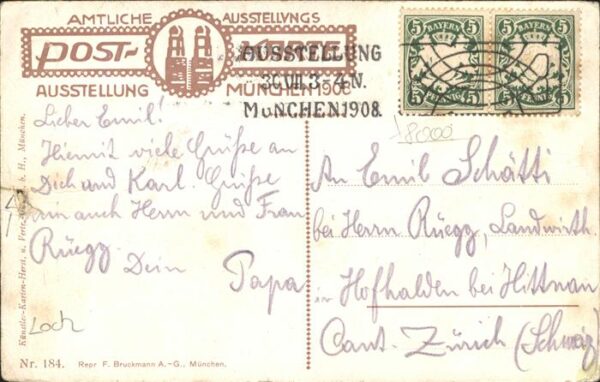 AMTLICHE AUSSTELLUNGS
POST-KARTE
AUSSTELLUNG MÜNCHEN 1908
AUSSTELLUNG
30.VII.3-4N.
MÜNCHEN.1908.
5 BAYERN 5
5 PFENNIG 5
5 BAYERN 5
5 PFENNIG 5
18000
Lieber Emil!
Hiemit viele Grüße an
Dich und Karl. Grüße
mir auch Herrn und Frau
Rüegg Dein Papa
Loch
An Emil Schätti
bei Herrn Rüegg, Landwirth
in Hofhalden bei Hittnau
Cant. Zürich (Schweiz)
Künstler-Karten-Herst. u. b. H., München.
Nr. 184. Repr F. Bruckmann A.-G., München.